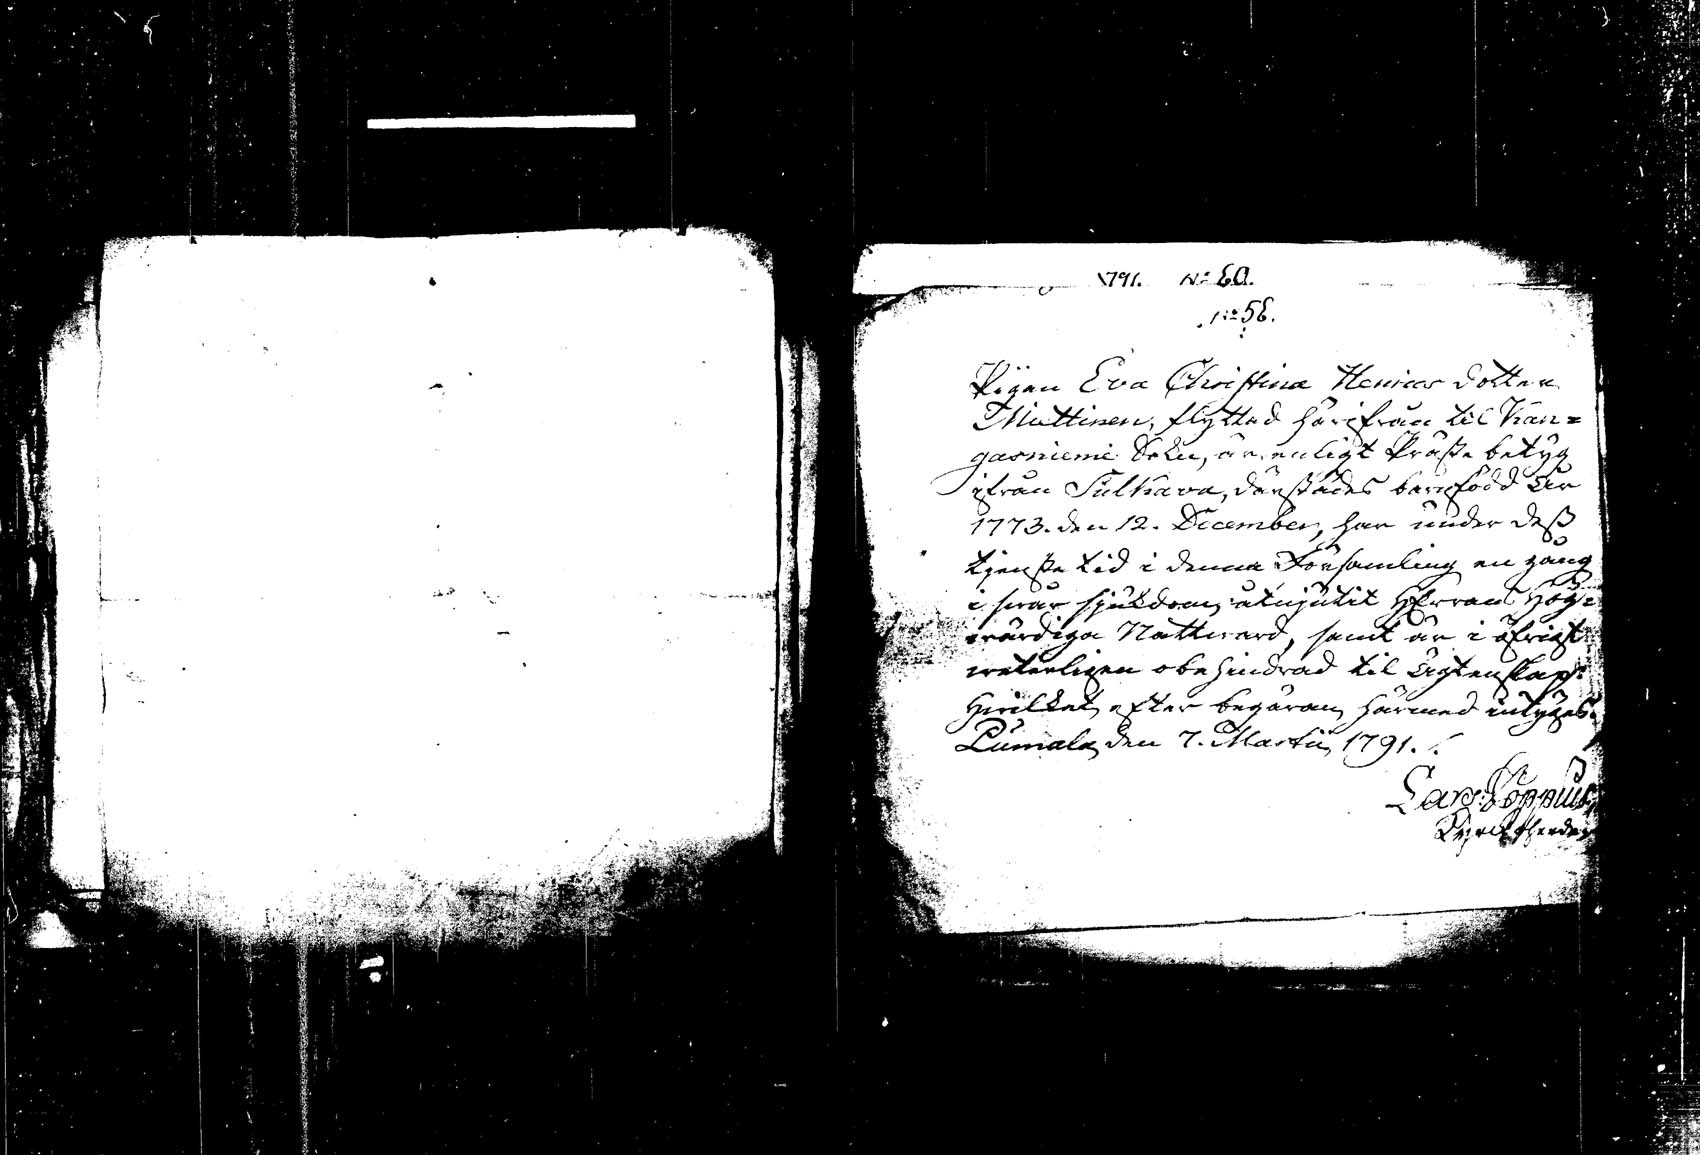 1791. No 60.
No 56.
Pigan Eva Christina Henricsdotter
Muttinen, flyttad härifrån til Kan=
gasniemi Sokn, är enligt Präste betyg
ifrån Sulkava, därstädes barnfödd År
1773. den 12. December, har under dess
tjenste tid i denna Församling en gång
i svår sjukdom åtnjutit HErrans Hög=
värdiga Nattward, samt är i öfrigt
veterligen obehindrad til Ägtenskap.
Hvilket efter begäran härmed intygas.
Pumala den 7. Martii 1791.
Lars Poppius
Kyrckoherde